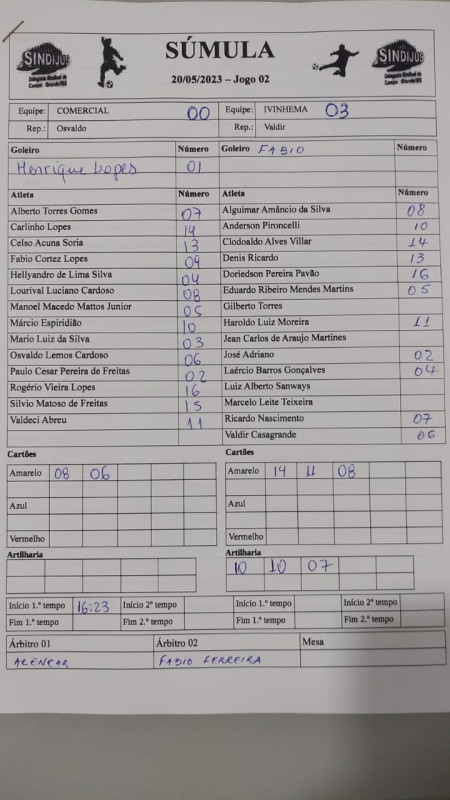 SINDIJUS
Delegacia Sindical de
Campo Grande/MS
SÚMULA
20/05/2023 – Jogo 02
SINDIJUS
Delegacia Sindical de
Campo Grande/MS
Equipe: COMERCIAL 00 Equipe: IVINHEMA 03
Rep.: Osvaldo Rep.: Valdir
Goleiro Número Goleiro FABIO Número
Henrique Lopes 01
Atleta Número Atleta Número
Alberto Torres Gomes 07 Alguimar Amâncio da Silva 08
Carlinho Lopes 14 Anderson Pironcelli 10
Celso Acuna Soria 13 Clodoaldo Alves Villar 14
Fabio Cortez Lopes 09 Denis Ricardo 13
Hellyandro de Lima Silva 04 Doriedson Pereira Pavão 16
Lourival Luciano Cardoso 08 Eduardo Ribeiro Mendes Martins 05
Manoel Macedo Mattos Junior 05 Gilberto Torres
Márcio Espiridião 10 Haroldo Luiz Moreira 11
Mario Luiz da Silva 03 Jean Carlos de Araujo Martines
Osvaldo Lemos Cardoso 06 José Adriano 02
Paulo Cesar Pereira de Freitas 02 Laércio Barros Gonçalves 04
Rogério Vieira Lopes 16 Luiz Alberto Sanways
Silvio Matoso de Freitas 15 Marcelo Leite Teixeira
Valdeci Abreu 11 Ricardo Nascimento 07
Valdir Casagrande 06
Cartões Cartões
Amarelo 08 06 Amarelo 14 11 08
Azul Azul
Vermelho Vermelho
Artilharia Artilharia
10 10 07
Início 1.º tempo 16:23 Início 2º tempo Início 1.º tempo Início 2º tempo
Fim 1.º tempo Fim 2.º tempo Fim 1.º tempo Fim 2.º tempo
Árbitro 01 Árbitro 02 Mesa
ALENCAR FABIO FERREIRA